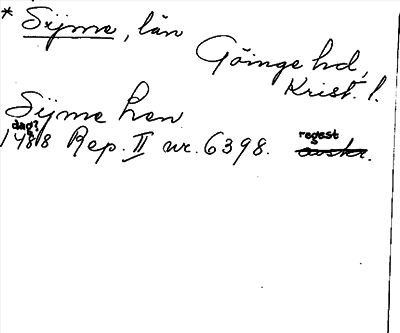 * Sijme, län
Göinge hd,
Krist. l.
Sijme hen
dag?
1488 Rep. II nr. 6398. regest
avskr.